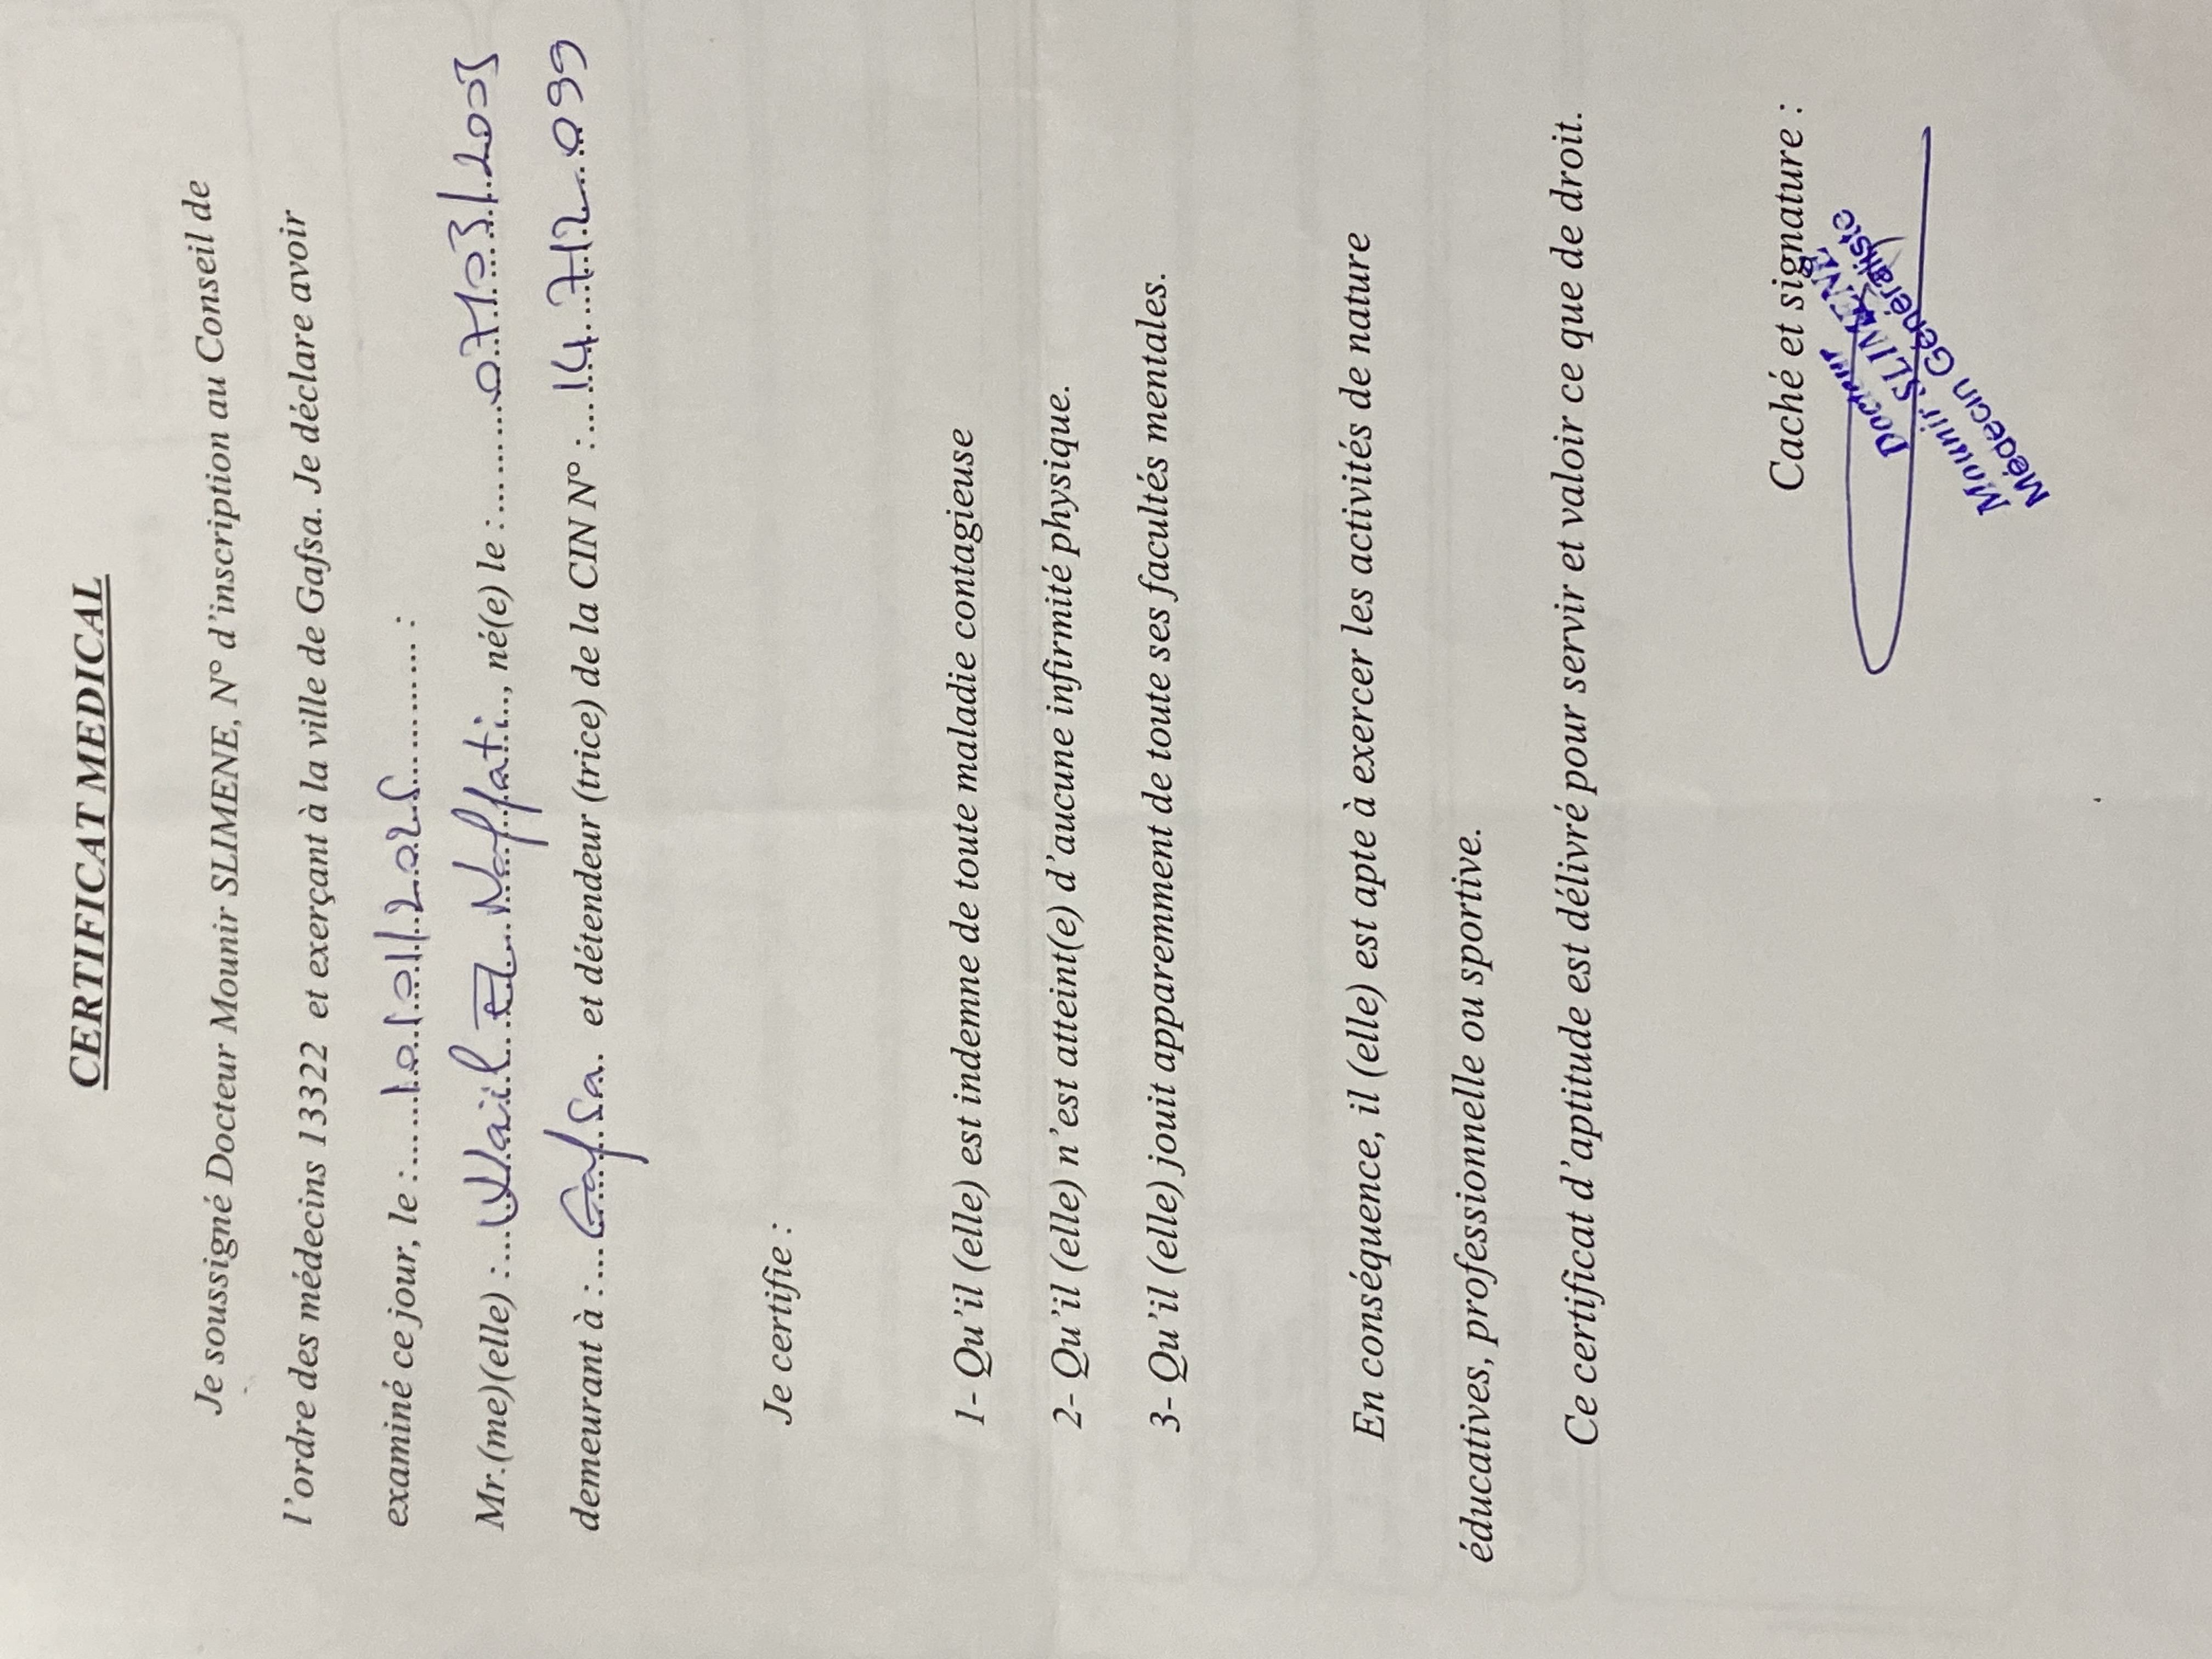 CERTIFICAT MEDICAL
Je soussigné Docteur Mounir SLIMENE, N° d'inscription au Conseil de
l'ordre des médecins 13322 et exerçant à la ville de Gafsa. Je déclare avoir
examiné ce jour, le :......10/01/2025............ :
Mr.(me)(elle) :...Wail El Naffati..., né(e) le :.........07/03/2005
demeurant à :...Gafsa. et détendeur (trice) de la CIN N° :...14 712 099
Je certifie :
1- Qu'il (elle) est indemne de toute maladie contagieuse
2- Qu'il (elle) n'est atteint(e) d'aucune infirmité physique.
3- Qu'il (elle) jouit apparemment de toute ses facultés mentales.
En conséquence, il (elle) est apte à exercer les activités de nature
éducatives, professionnelle ou sportive.
Ce certificat d'aptitude est délivré pour servir et valoir ce que de droit.
Caché et signature :
Docteur
Mounir SLIMENE
Médecin Généraliste